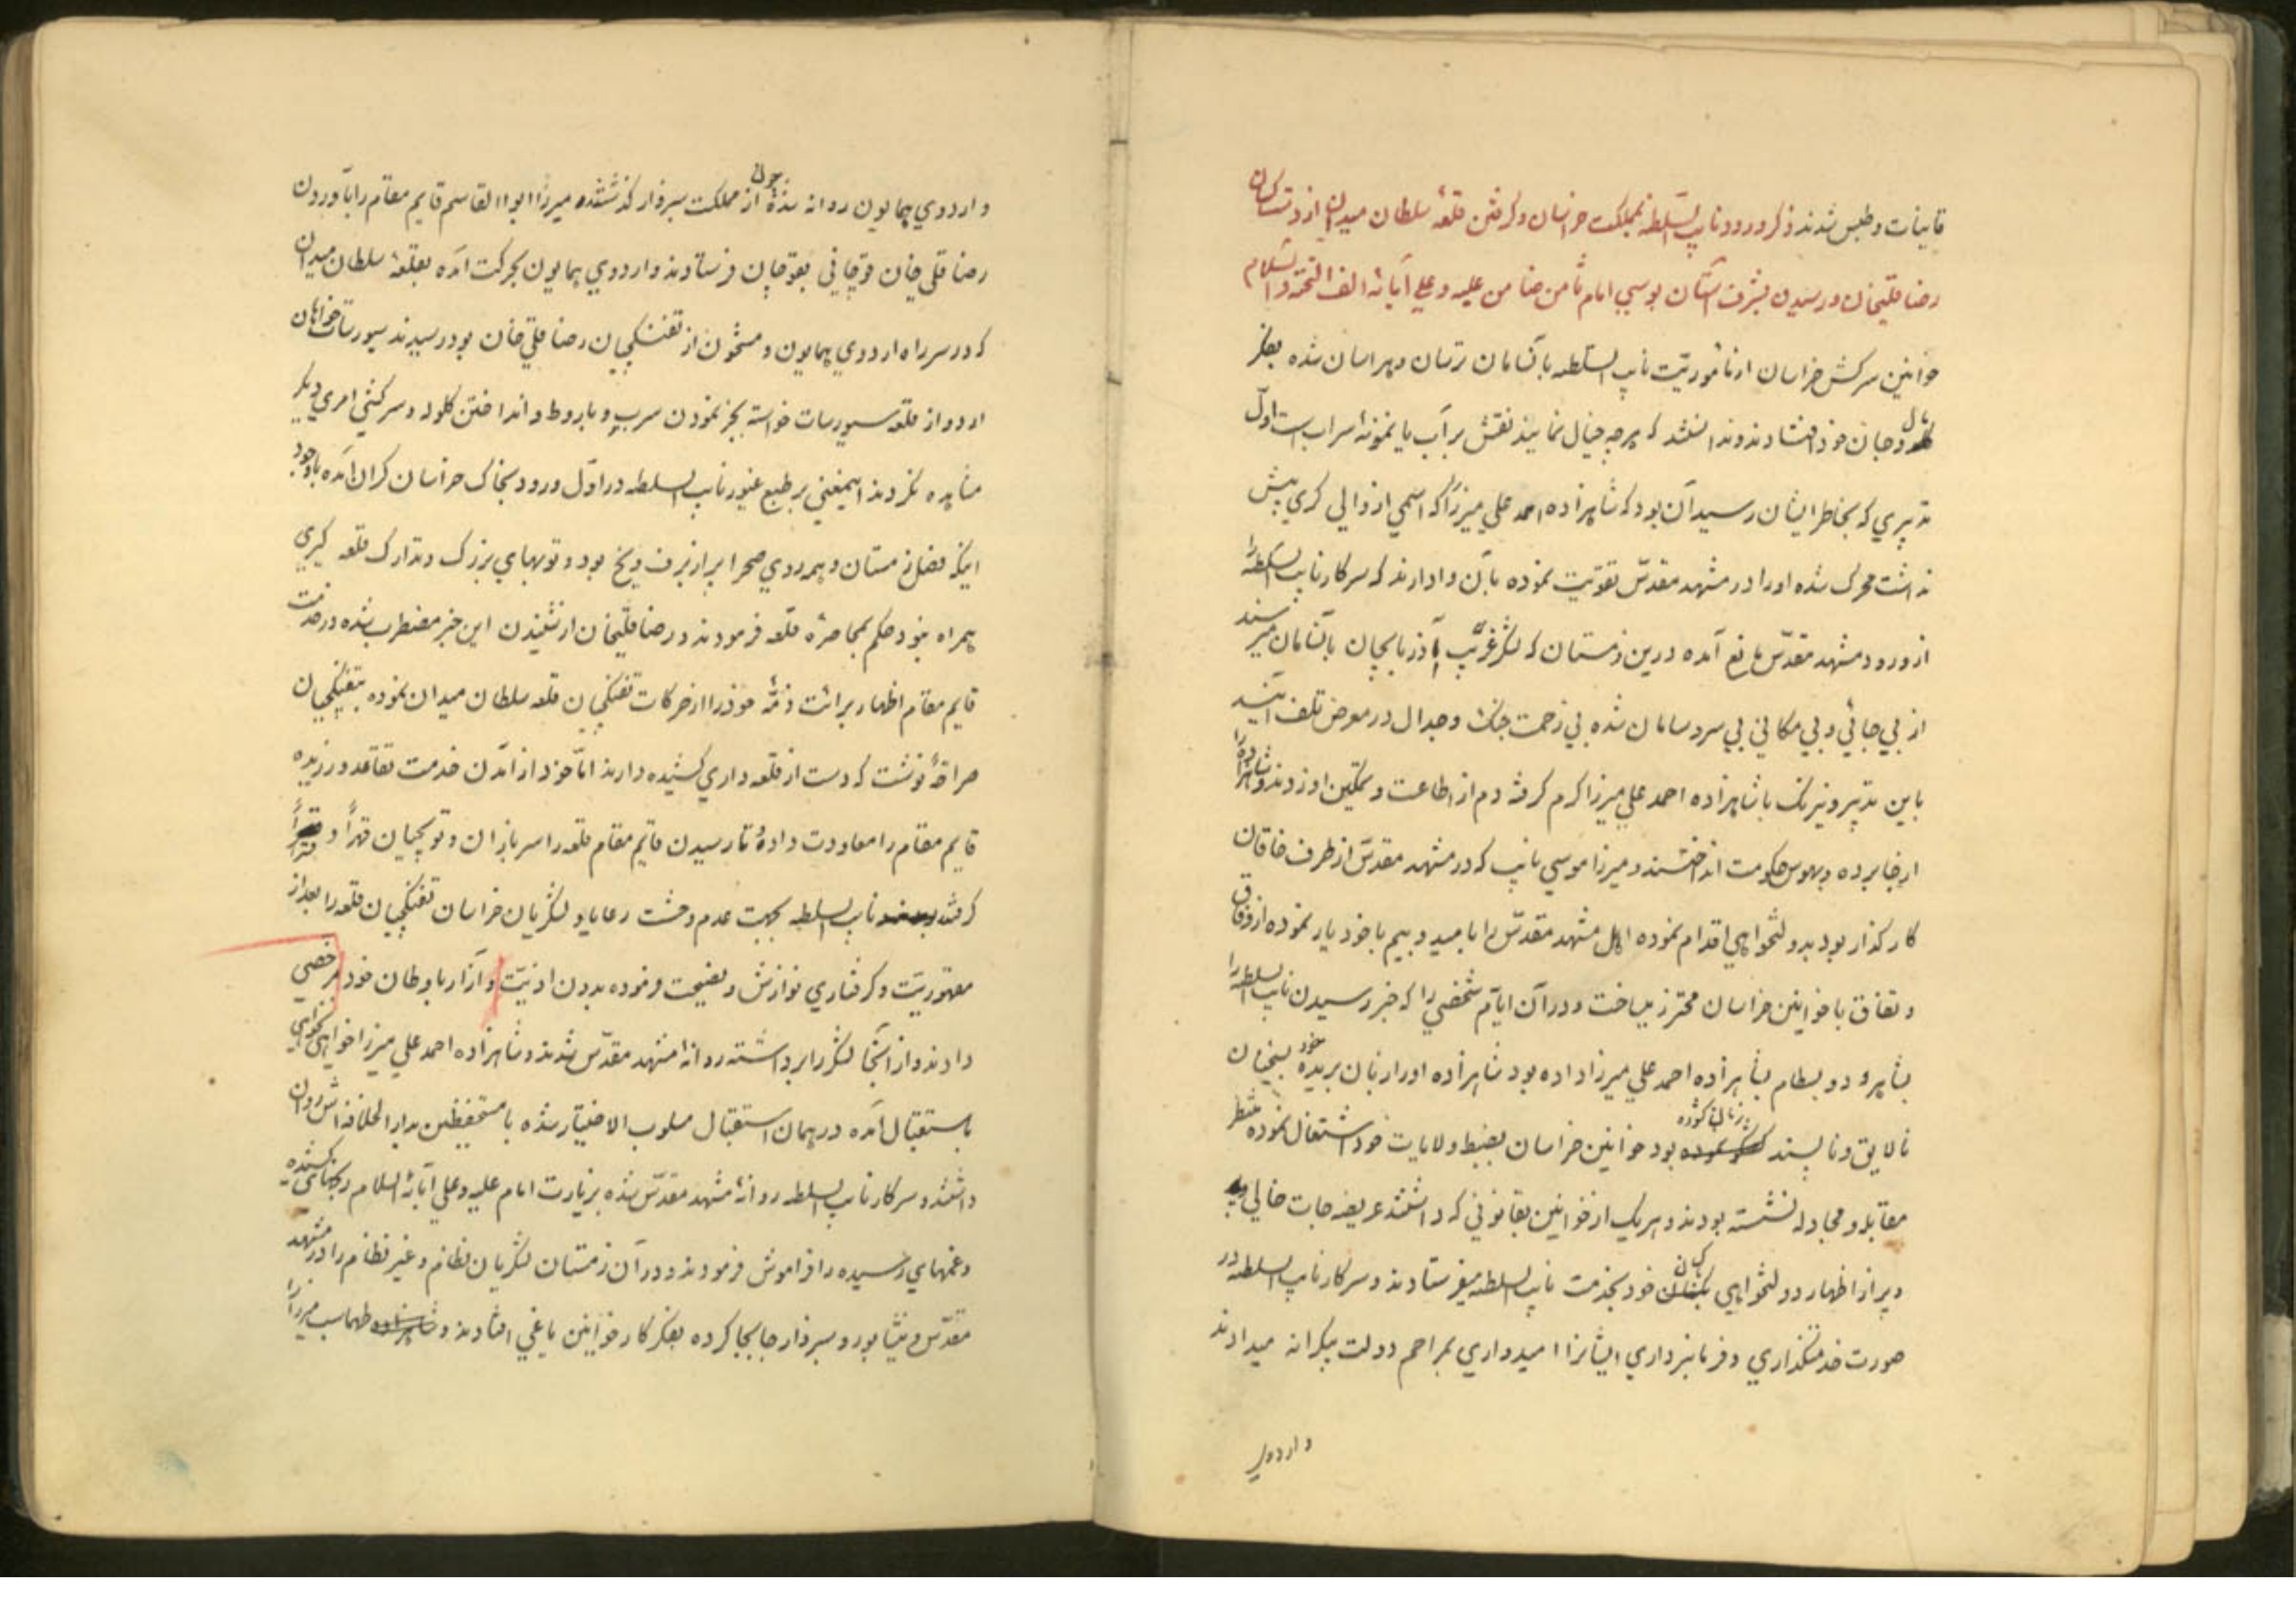 قاینات و طبس شدند ذکر ورود نایب السلطنه بمملکت خراسان و گرفتن قلعهٔ سلطان میدان از دست کسان
رضا قلیخان و رسیدن بشرف آستان بوسی امام ثامن ضامن علیه و علی آبائه الف التحیة و السلام
خوانین سرکش خراسان از مأموریّت نایب السلطنه بآنسامان ترسان و هراسان شده بفکر
مال و جان خود افتادند و ندانستند که هر چه خیال نمایند نقش بر آب یا نمونهٔ سراب است اوّل
تدبیری که بخاطر ایشان رسید آن بود که شاهزاده احمد علی میرزا که اسمی از والی گری بیش
نداشت محرک شده او را در مشهد مقدّس تقویت نموده بآن وادارند که سرکار نایب السلطنه را
از ورود مشهد مقدّس مانع آمده درین زمستان که لشکر غریب آذربایجان بآنسامان میرسند
از بی جائی و بی مکانی بی سر و سامان شده بی زحمت جنک و جدال در معرض تلف آیند
باین تدبیر و نیرنک با شاهزاده احمد علی میرزا گرم گرفته دم از اطاعت و تمکین او زدند و شاهزاده را
از جا برده و بهوس حکومت انداختند و میرزا موسی نایب که در مشهد مقدّس از طرف خاقان
کارگذار بود بدولتخواهی اقدام نموده اهل مشهد مقدّس را بامید و بیم با خود یار نموده از وفاق
و نفاق با خوانین خراسان محترز میساخت و در آن ایّام شخصی را که خبر رسیدن نایب السلطنه را
بشاهرود و بسطام بشاهزاده احمد علی میرزا داده بود شاهزاده او را زبان بریده خود بسخنان
نالایق و ناپسند زبان گشوده بود خوانین خراسان بضبط ولایات خود اشتغال نموده منتظر
مقابله و مجادله نشسته بودند و هر یک از خوانین بقانونی که داشتند عریضه جات خالی
و پر از اظهار دولتخواهی بکسان خود بخدمت نایب السلطنه میفرستادند و سرکار نایب السلطنه در
صورت خدمتگذاری و فرمانبرداری ایشانرا امیدواری بمراحم دولت بیکرانه میدادند
و اردوی
و اردوی همایون روانه شده چون از مملکت سبزوار گذشتند میرزا ابوا القاسم قایم مقام را بآوردن
رضا قلی خان قوچانی بقوچان فرستادند و اردوی همایون بحرکت آمده بقلعهٔ سلطان میدان
که در سر راه اردوی همایون و مشحون از تفنگچیان رضا قلی خان بود رسیدند سیورسات خواهان
اردو از قلعه سیورسات خواسته بجز نمودن سرب و باروط و انداختن گلوله و سرکشی امری دیگر
مشاهده نکردند اینمعنی بر طبع غیور نایب السلطنه در اوّل ورود بخاک خراسان گران آمده با وجود
اینکه فصل زمستان و همه روی صحرا پر از برف و یخ بود و توپهای بزرگ و تدارک قلعه گیری
همراه نبود حکم بمحاصرهٔ قلعه فرمودند و رضا قلیخان از شنیدن این خبر مضطرب شده در خدمت
قایم مقام اظهار برائت ذمّهٔ خود را از حرکات تفنگچیان قلعه سلطان میدان نموده بتفنگچیان
صراحةً نوشت که دست از قلعه داری کشیده دارند امّا خود از آمدن خدمت تقاعد ورزیده
قایم مقام را معاودت داده تا رسیدن قایم مقام قلعه را سربازان و توپچیان قهراً و قسراً
گرفته نایب السلطنه بجهت عدم وحشت رعایا و لشکریان خراسان تفنگچیان قلعه را بعد از
مقهوریّت و گرفتاری نوازش و نصیحت فرموده بدون اذیّت و آزار باوطان خود مرخصی
دادند و از آنجا لشکر را برداشته روانهٔ مشهد مقدّس شدند و شاهزاده احمد علی میرزا خواهی نخواهی
باستقبال آمده در همان استقبال مسلوب الاختیار شده با مستحفظین بدار الخلافه اش روان
داشتند و سرکار نایب السلطنه روانهٔ مشهد مقدّس شده بزیارت امام علیه و علی آبائه السلام
و غمهای رسیده را فراموش فرمودند و در آن زمستان لشکریان نظام و غیر نظام را در مشهد
مقدّس و نیشابور و سبزوار جابجا کرده بفکر کار خوانین یاغی افتادند و طهماسب میرزا را